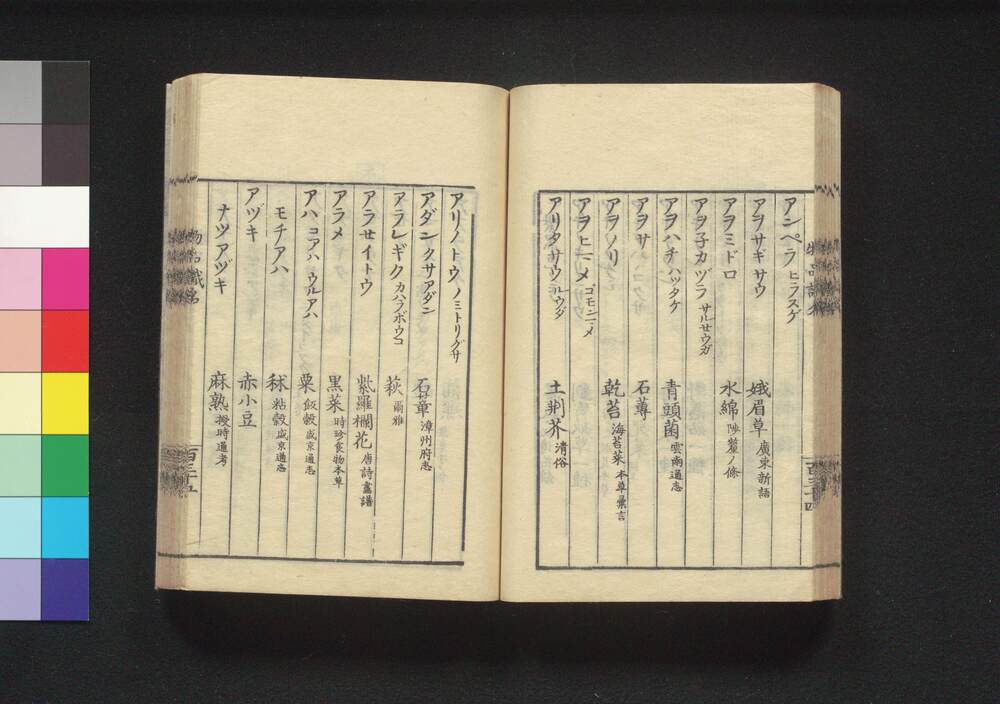 アンペラ ヒラスゲ
アヲサギサウ 娥眉草 廣東新語
アヲミドロ 水綿 陟釐ノ條
アヲ子カヅラ サルセウガ
アヲハチ ハツタケ 青頭菌 雲南通志
アヲサ 石蓴
アヲノリ 乾苔 海苔菜 本草彙言
アヲヒユ
アリタサウ ルウダ 土荆芥 清俗
百三十四
アリノトウ ノミトリグサ
アダン クサアダン 石章 漳州府志
アラレギク カハラボウコ 萩 爾雅
アラセイトウ 紫羅欄花 唐詩畫譜
アラメ 黒菜 時珍食物本草
アハ コアハ ウルアハ 粟 飯穀 盛京通志
モチアハ 秫 粘穀 盛京通志
アヅキ 赤小豆
ナツアヅキ 麻熟 授時通考
物品識名
百三十五